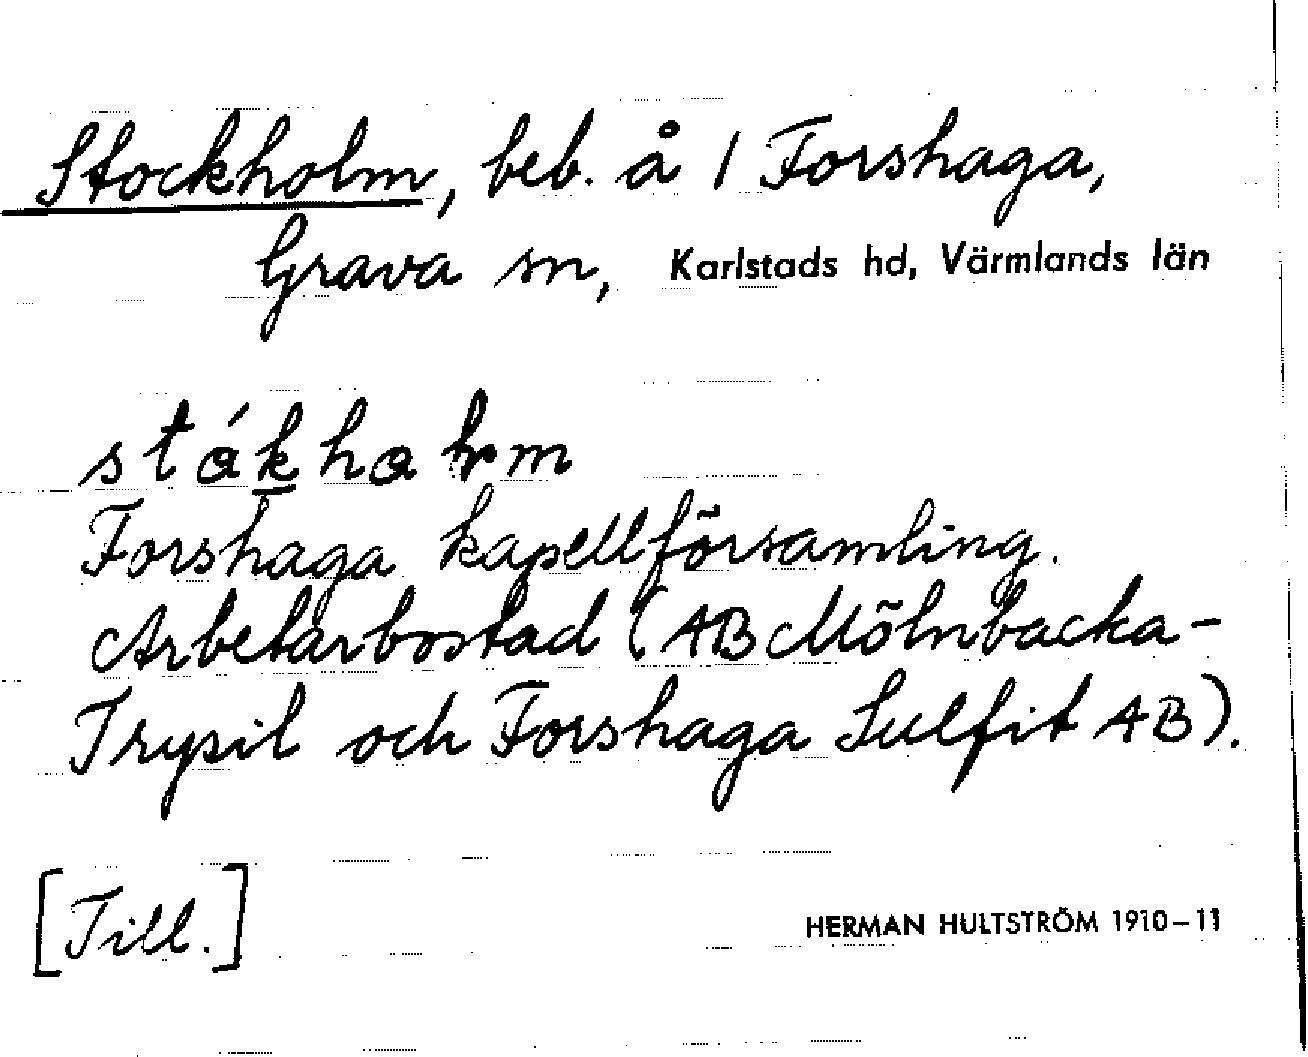 Stockholm, beb. å 1 Forshaga,
Grava sn, Karlstads hd, Värmlands län
Forshaga kapellförsamling.
Arbetarbostad (AB Mölnbacka-
Trysil och Forshaga Sulfit AB).
[Till.] HERMAN HULTSTRÖM 1910–11